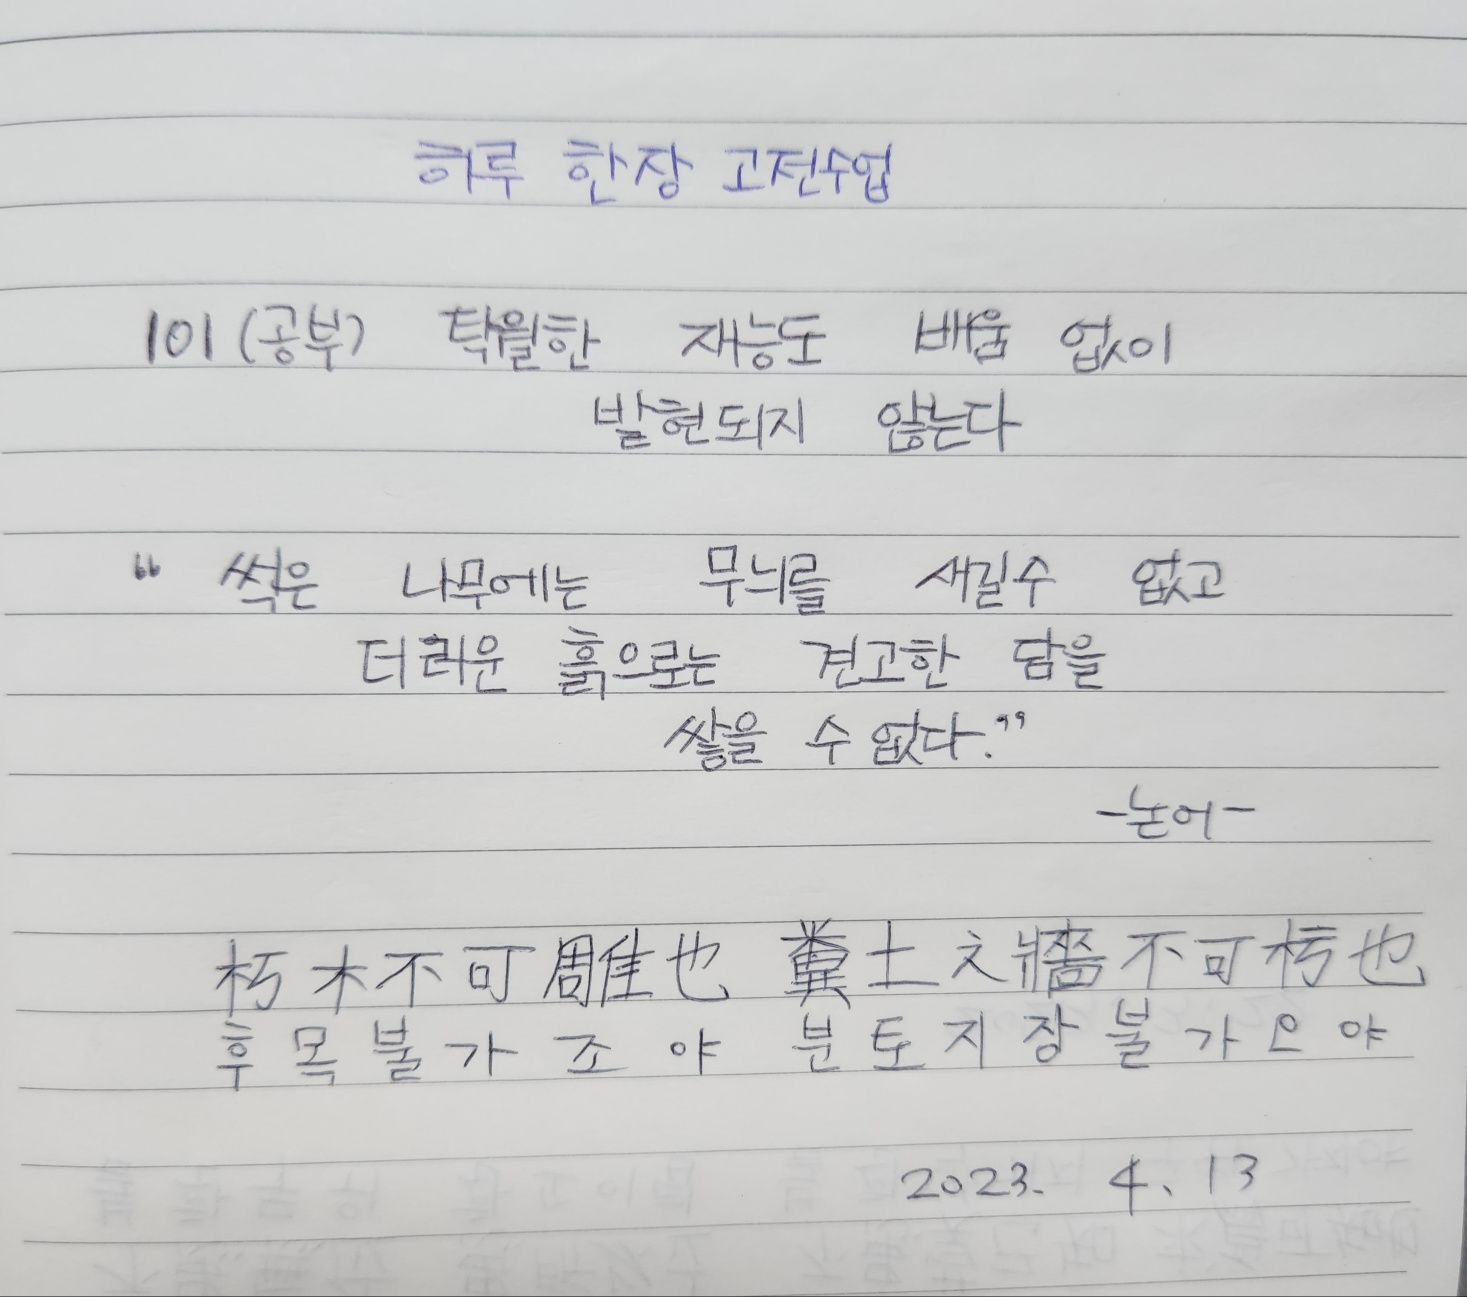 하루 한장 고전수업
101 (공부) 탁월한 재능도 배움 없이
발현되지 않는다
“ 썩은 나무에는 무늬를 새길수 없고
더러운 흙으로는 견고한 담을
쌓을 수 없다.”
-논어-
朽木不可雕也 糞土之牆不可杇也
후목불가조야 분토지장불가오야
2023. 4. 13